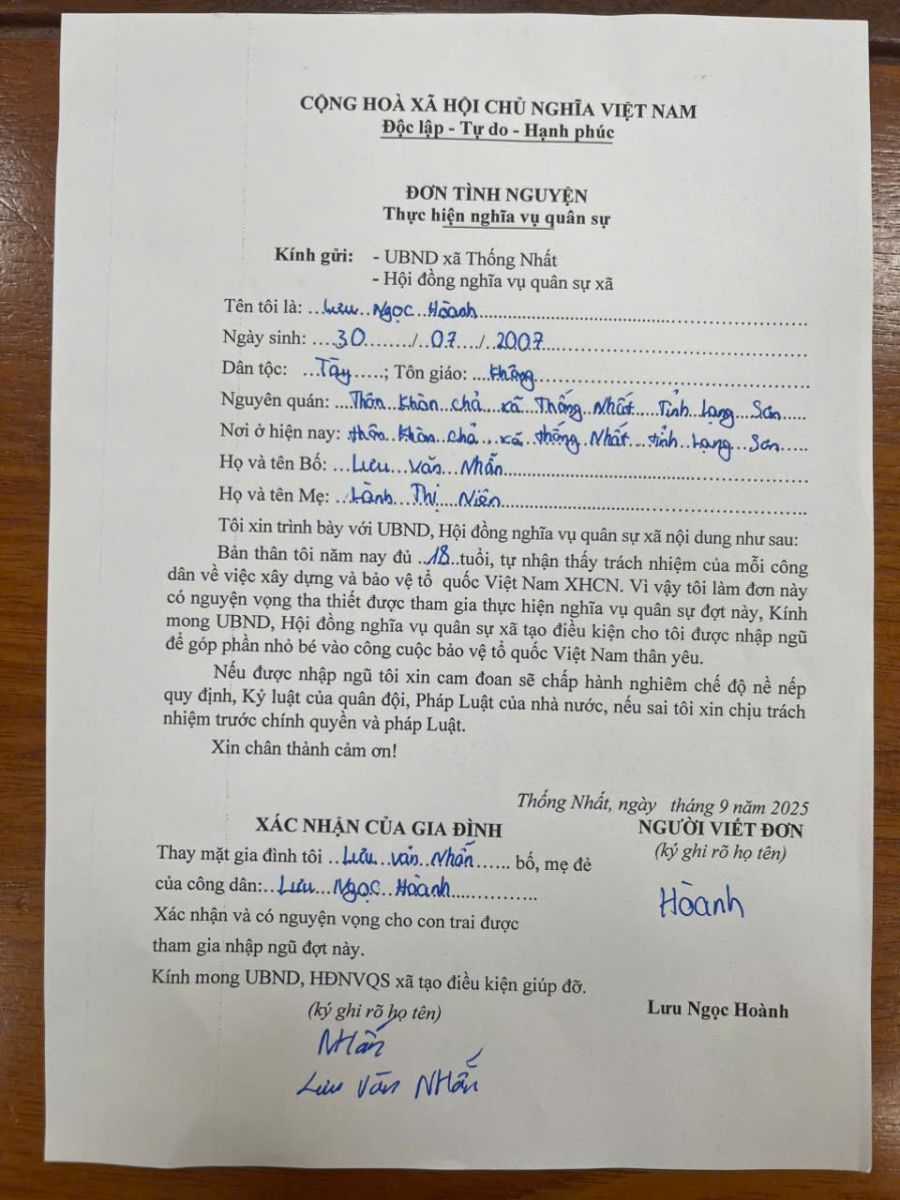 CỘNG HOÀ XÃ HỘI CHỦ NGHĨA VIỆT NAM
Độc lập - Tự do - Hạnh phúc
ĐƠN TÌNH NGUYỆN
Thực hiện nghĩa vụ quân sự
Kính gửi: - UBND xã Thống Nhất
- Hội đồng nghĩa vụ quân sự xã
Tên tôi là: Lưu Ngọc Hoành
Ngày sinh: 30 / 07 / 2007
Dân tộc: Tày; Tôn giáo: không
Nguyên quán: Thôn Khòn Chả xã Thống Nhất Tỉnh Lạng Sơn
Nơi ở hiện nay: thôn Khòn chả xã thống Nhất tỉnh Lạng Sơn
Họ và tên Bố: Lưu văn Nhấn
Họ và tên Mẹ: Lành Thị Niên
Tôi xin trình bày với UBND, Hội đồng nghĩa vụ quân sự xã nội dung như sau:
Bản thân tôi năm nay đủ 18 tuổi, tự nhận thấy trách nhiệm của mỗi công
dân về việc xây dựng và bảo vệ tổ quốc Việt Nam XHCN. Vì vậy tôi làm đơn này
có nguyện vọng tha thiết được tham gia thực hiện nghĩa vụ quân sự đợt này, Kính
mong UBND, Hội đồng nghĩa vụ quân sự xã tạo điều kiện cho tôi được nhập ngũ
để góp phần nhỏ bé vào công cuộc bảo vệ tổ quốc Việt Nam thân yêu.
Nếu được nhập ngũ tôi xin cam đoan sẽ chấp hành nghiêm chế độ nề nếp
quy định, Kỷ luật của quân đội, Pháp Luật của nhà nước, nếu sai tôi xin chịu trách
nhiệm trước chính quyền và pháp Luật.
Xin chân thành cảm ơn!
Thống Nhất, ngày tháng 9 năm 2025
XÁC NHẬN CỦA GIA ĐÌNH
Thay mặt gia đình tôi Lưu văn Nhấn bố, mẹ đẻ
của công dân: Lưu Ngọc Hoành
Xác nhận và có nguyện vọng cho con trai được
tham gia nhập ngũ đợt này.
Kính mong UBND, HĐNVQS xã tạo điều kiện giúp đỡ.
(ký ghi rõ họ tên)
Nhấn
Lưu Văn Nhấn
NGƯỜI VIẾT ĐƠN
(ký ghi rõ họ tên)
Hoành
Lưu Ngọc Hoành